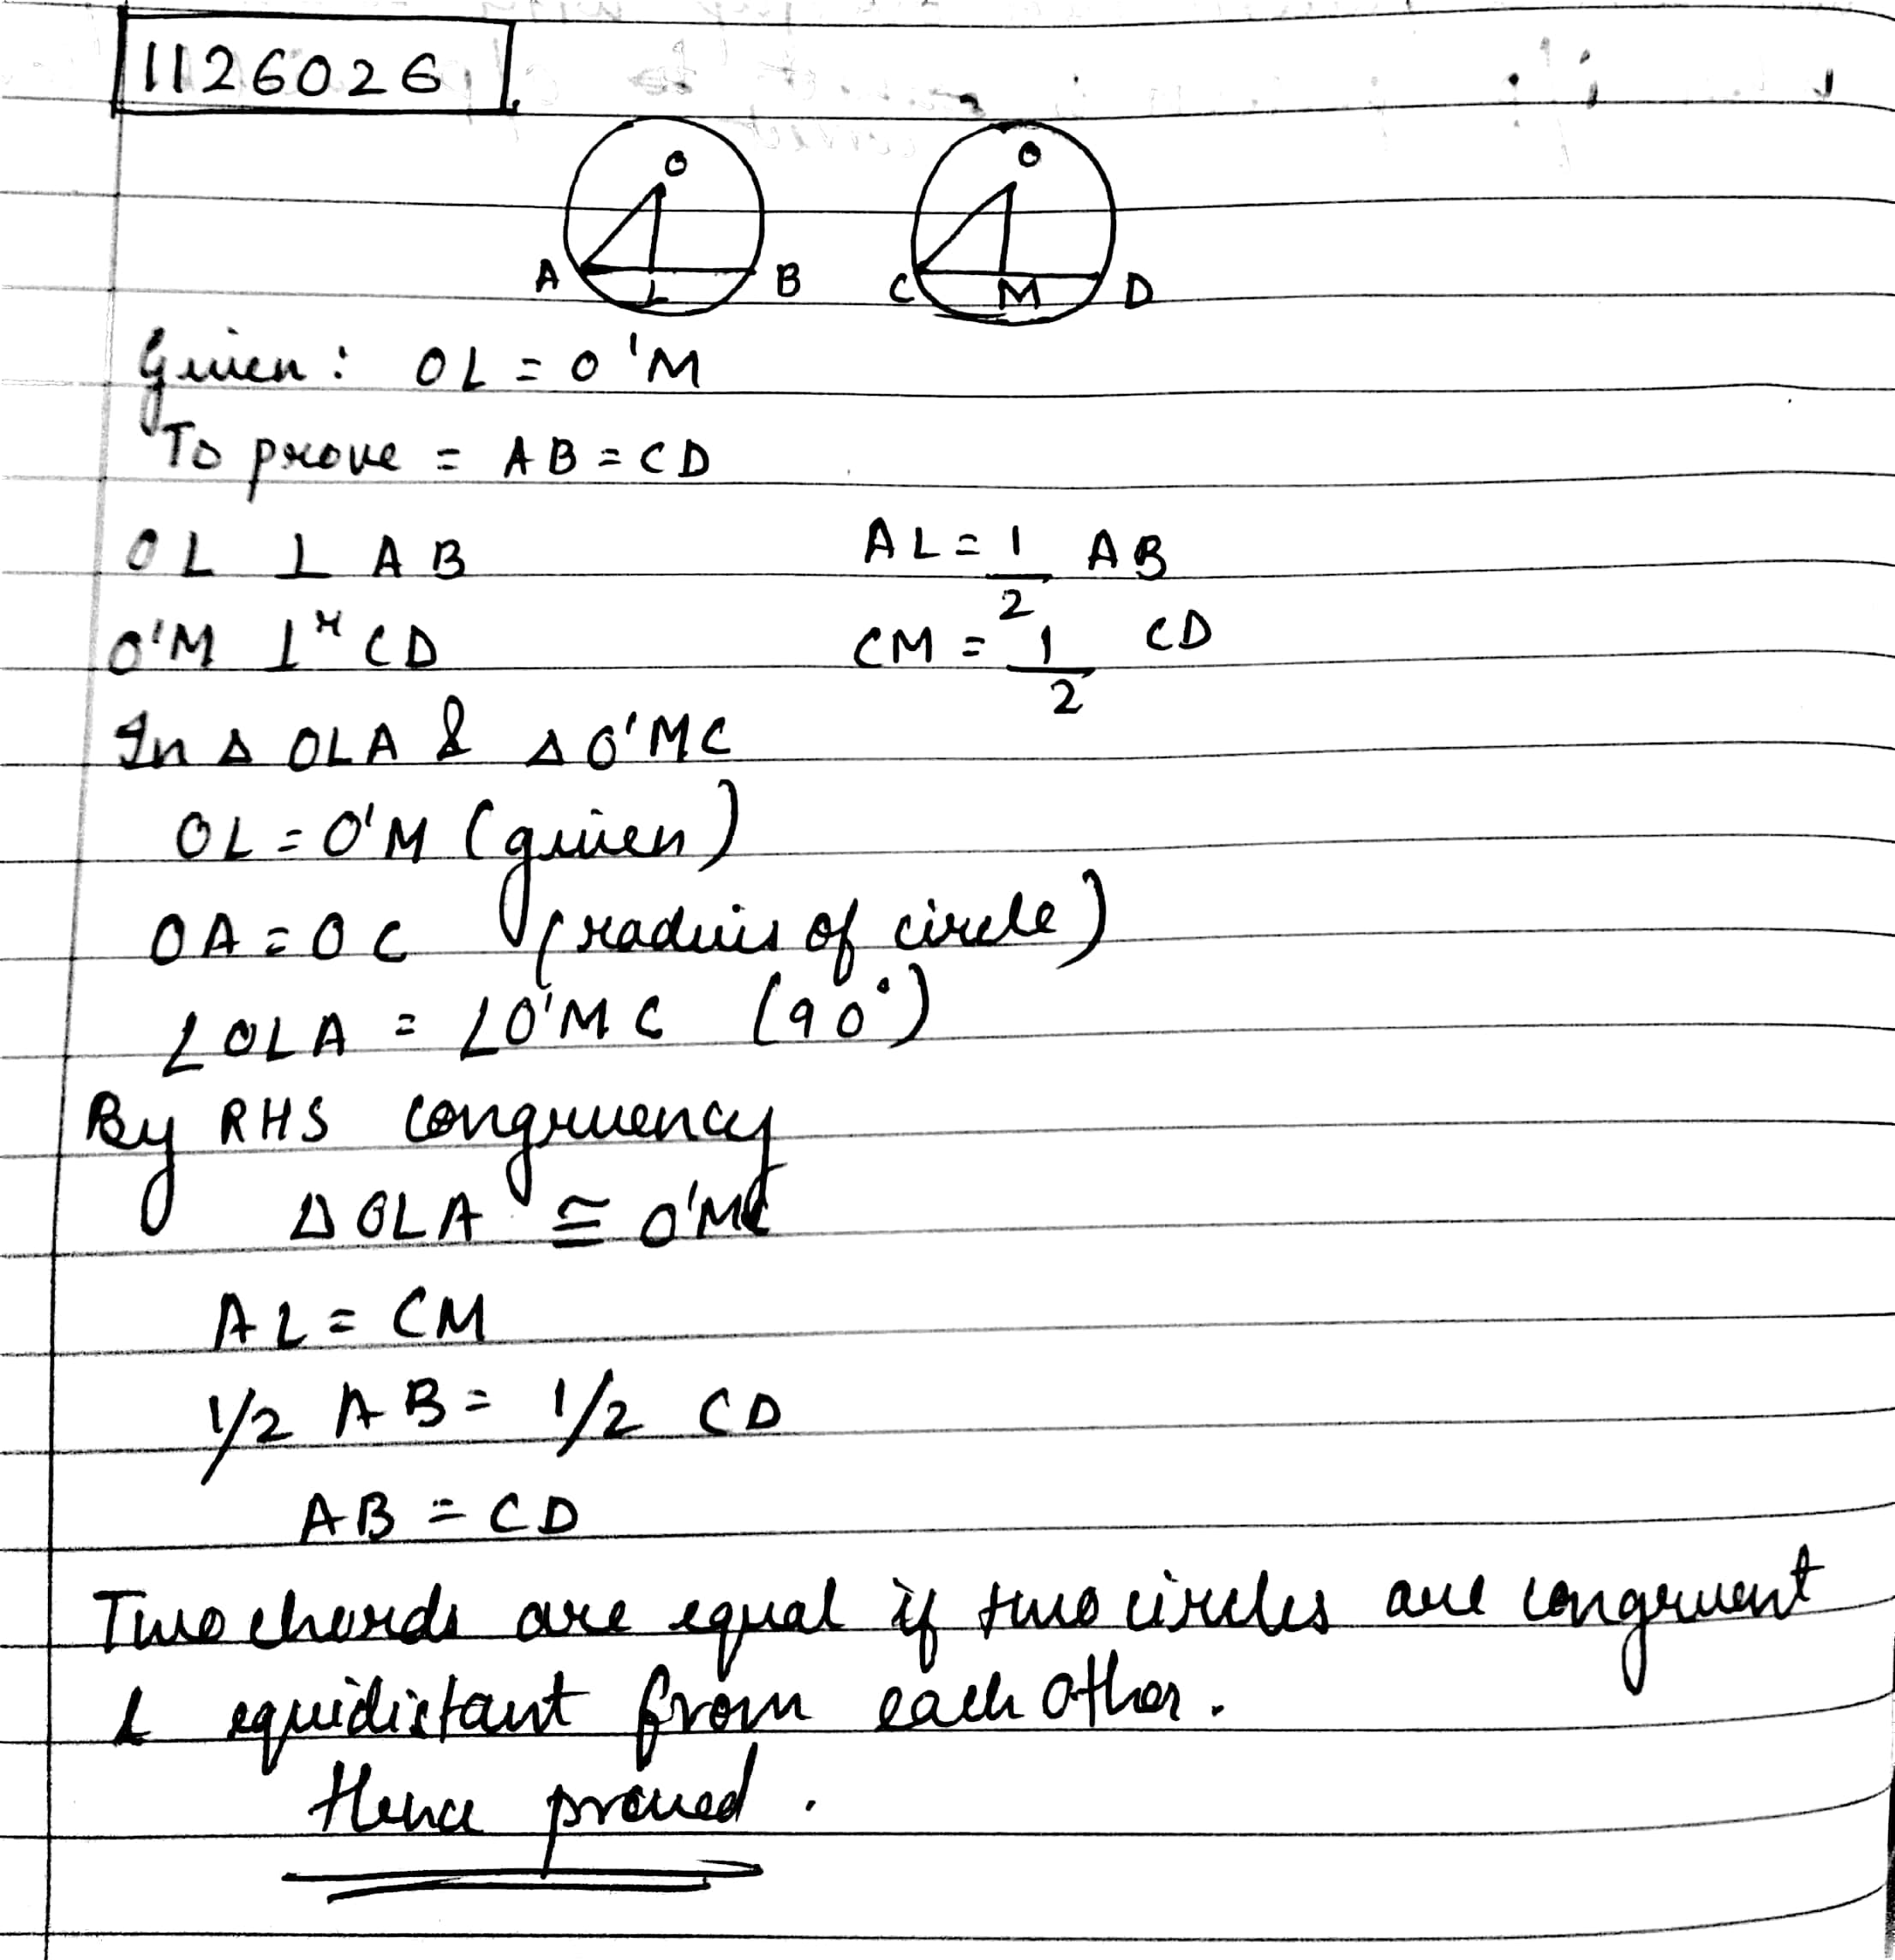 1126026
O O
A L B C M D
Given : OL = O'M
To prove = AB = CD
OL ⊥ AB AL = 1/2 AB
O'M ⊥r CD CM = 1/2 CD
In Δ OLA & Δ O'MC
OL = O'M (given)
OA = OC (radius of circle)
∠OLA = ∠O'MC (90°)
By RHS congruency
Δ OLA ≅ O'MC
AL = CM
1/2 AB = 1/2 CD
AB = CD
Two chords are equal if two circles are congruent
& equidistant from each other.
Hence proved.